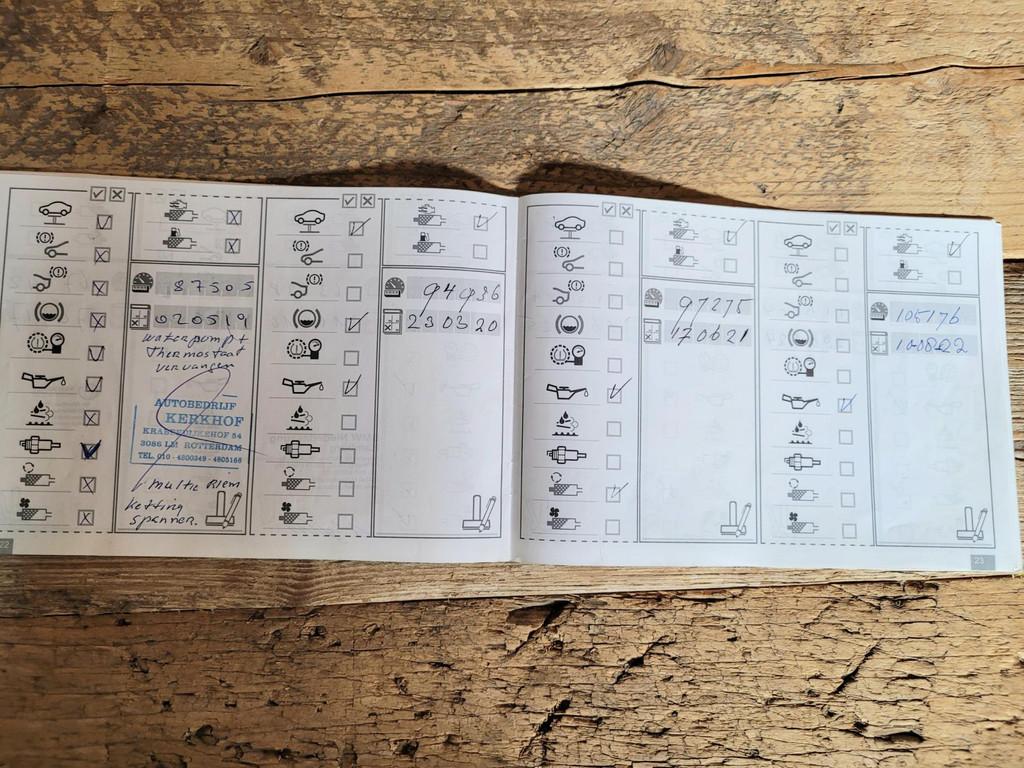 87505
020519
waterpump +
Thermostaat
vervangen
AUTOBEDRIJF
KERKHOF
KRABBENDIJKEHOF 54
3086 LM ROTTERDAM
TEL. 010 - 4800349 - 4805166
multie Riem
ketting
spanner.
22
94936
230320
97275
170621
105176
23